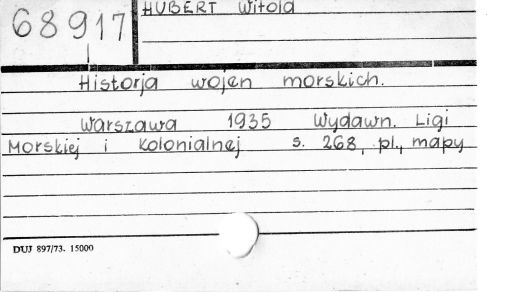 68917
HUBERT Witold
Historja wojen morskich.
Warszawa 1935 Wydawn. Ligi
Morskiej i Kolonialnej s. 268, pl., mapy
DUJ 897/73. 15000